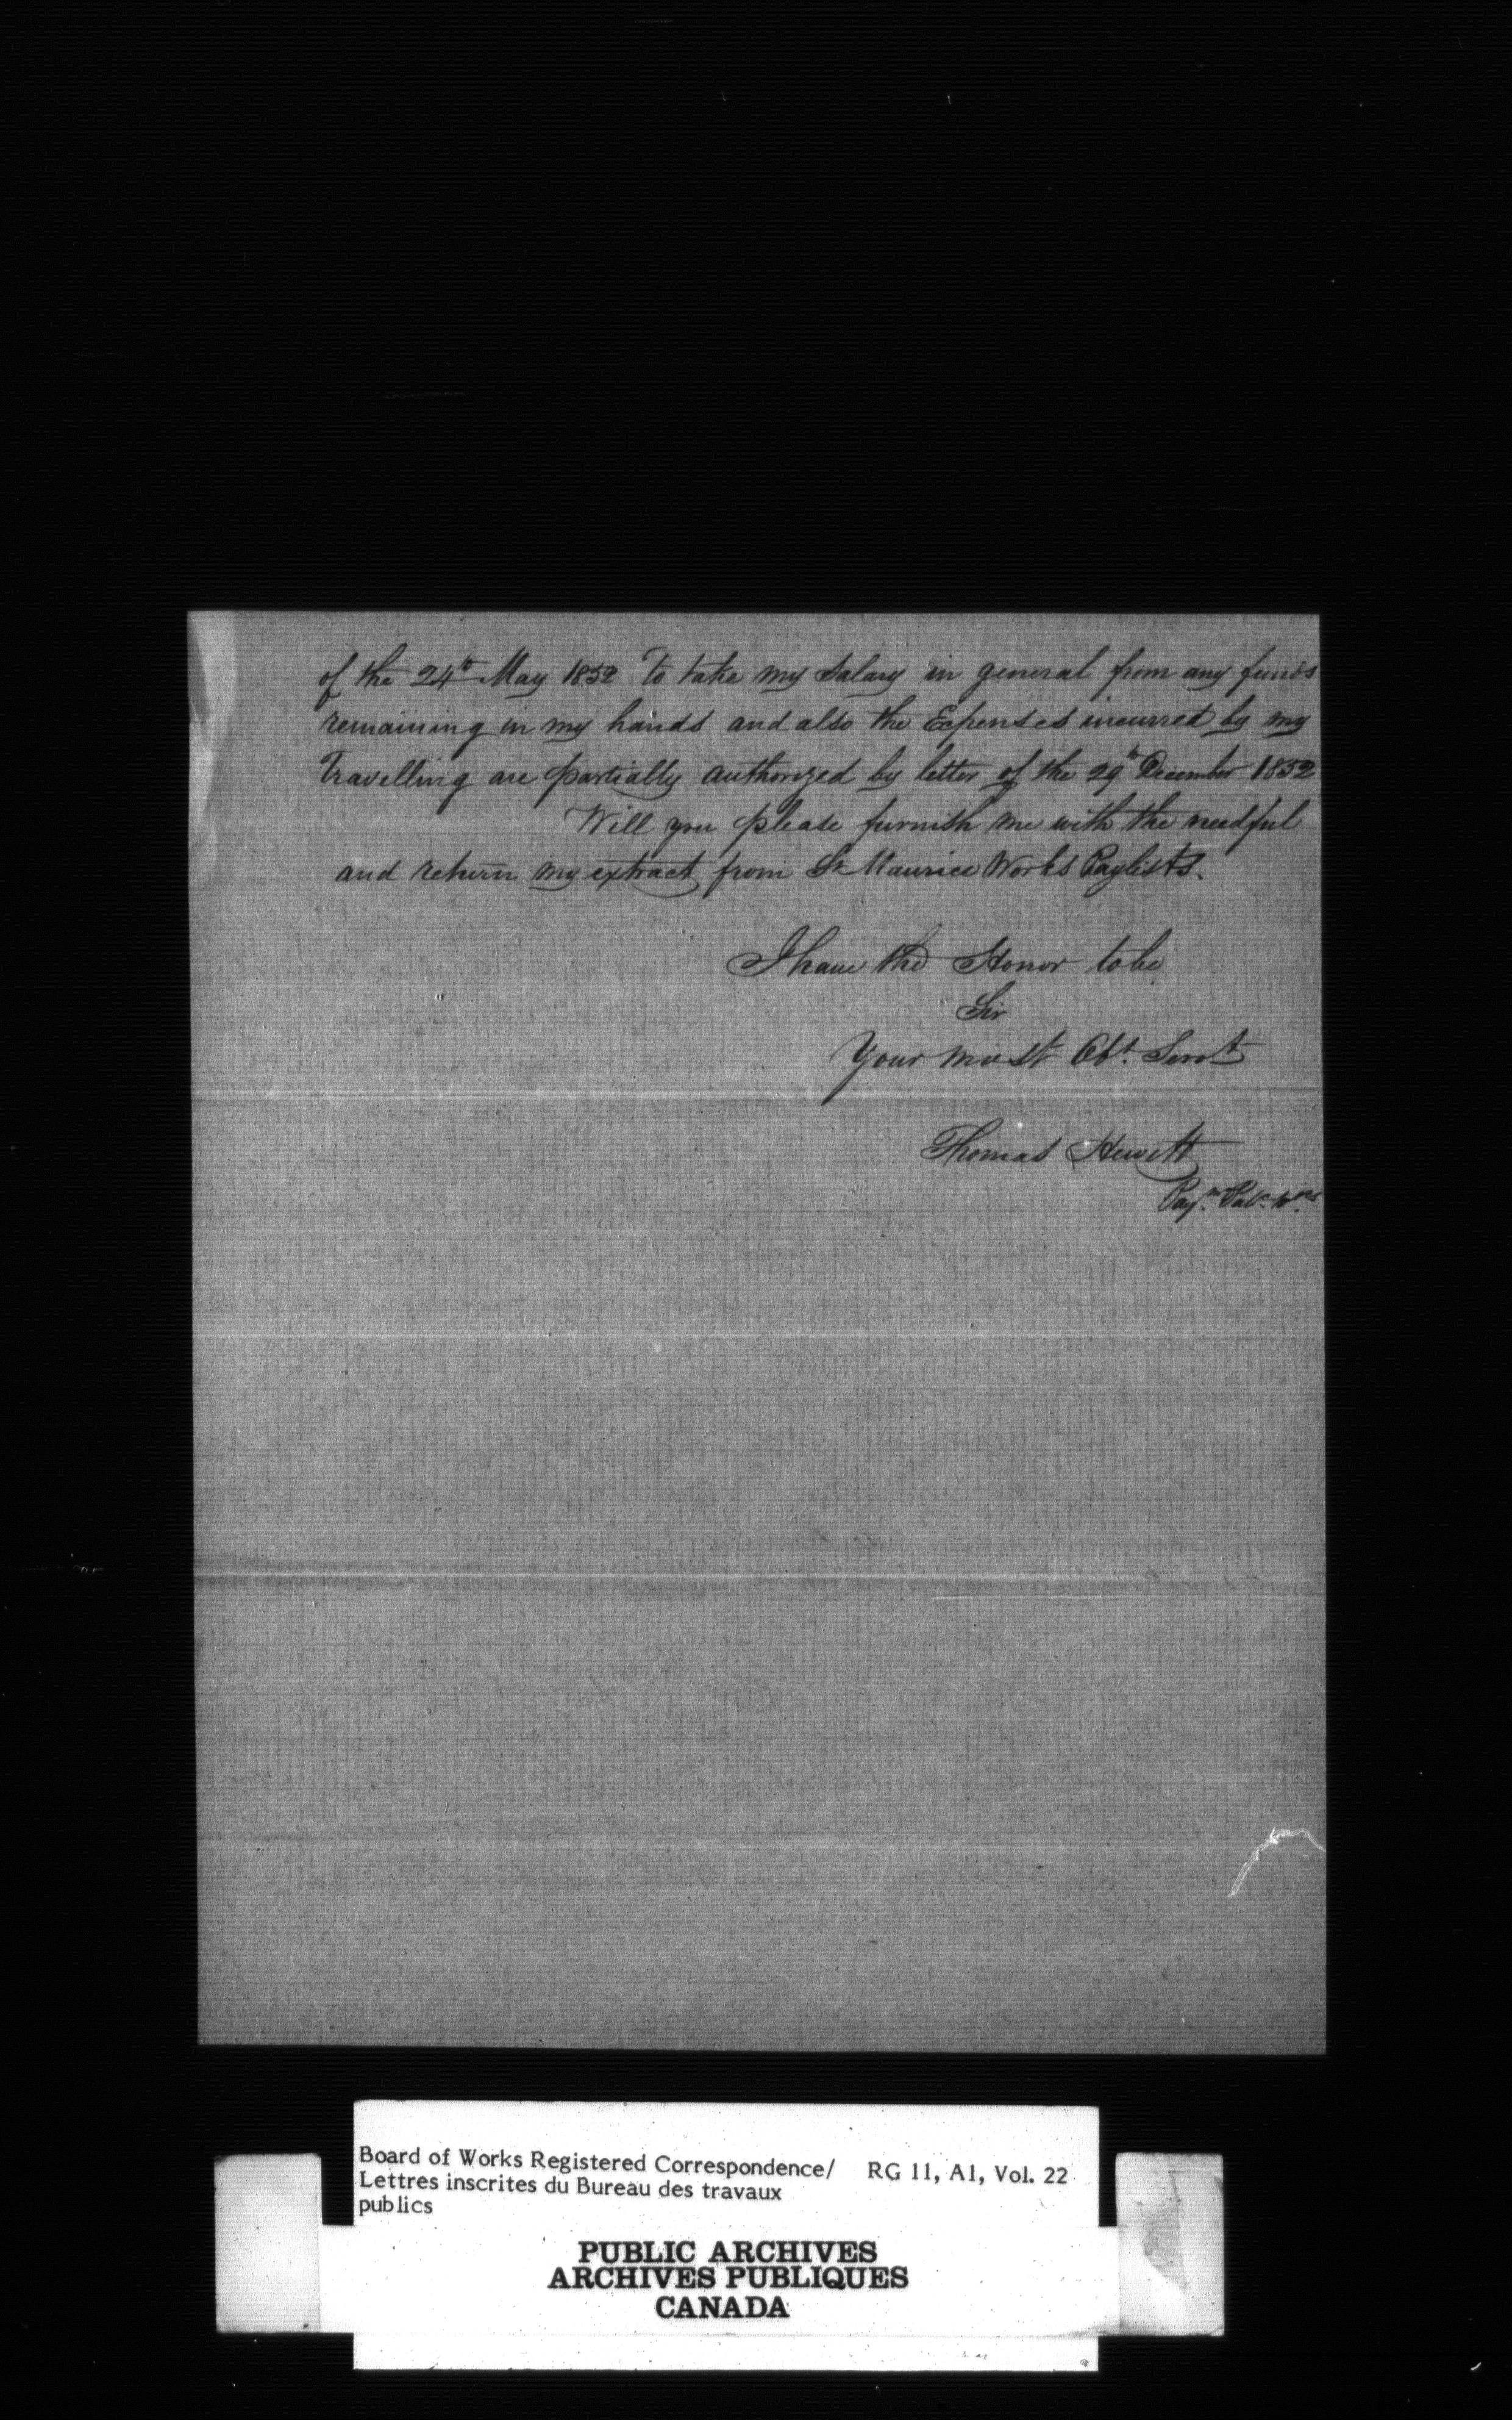 of the 24th May 1852 To take my Salary in general from any funds
remaining in my hands and also the Expenses incurred by my
Travelling are partially authorized by letter of the 29th December 1852
Will you please furnish me with the needful
and return my extract from St Maurice Works Paylists.
I have the Honor to be
Sir
Your most Obt. Servt
Thomas Hewitt
Paymr. Pub. Wks
Board of Works Registered Correspondence/ RG 11, A1, Vol. 22
Lettres inscrites du Bureau des travaux
publics
PUBLIC ARCHIVES
ARCHIVES PUBLIQUES
CANADA